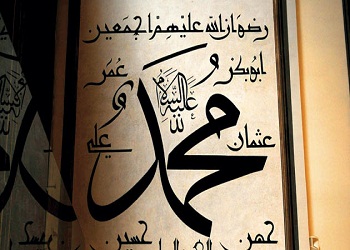 رضوان الله عليهم اجمعين
ابوبكر عمر
عليه السلام
محمد
عثمان علي
حسن حسين